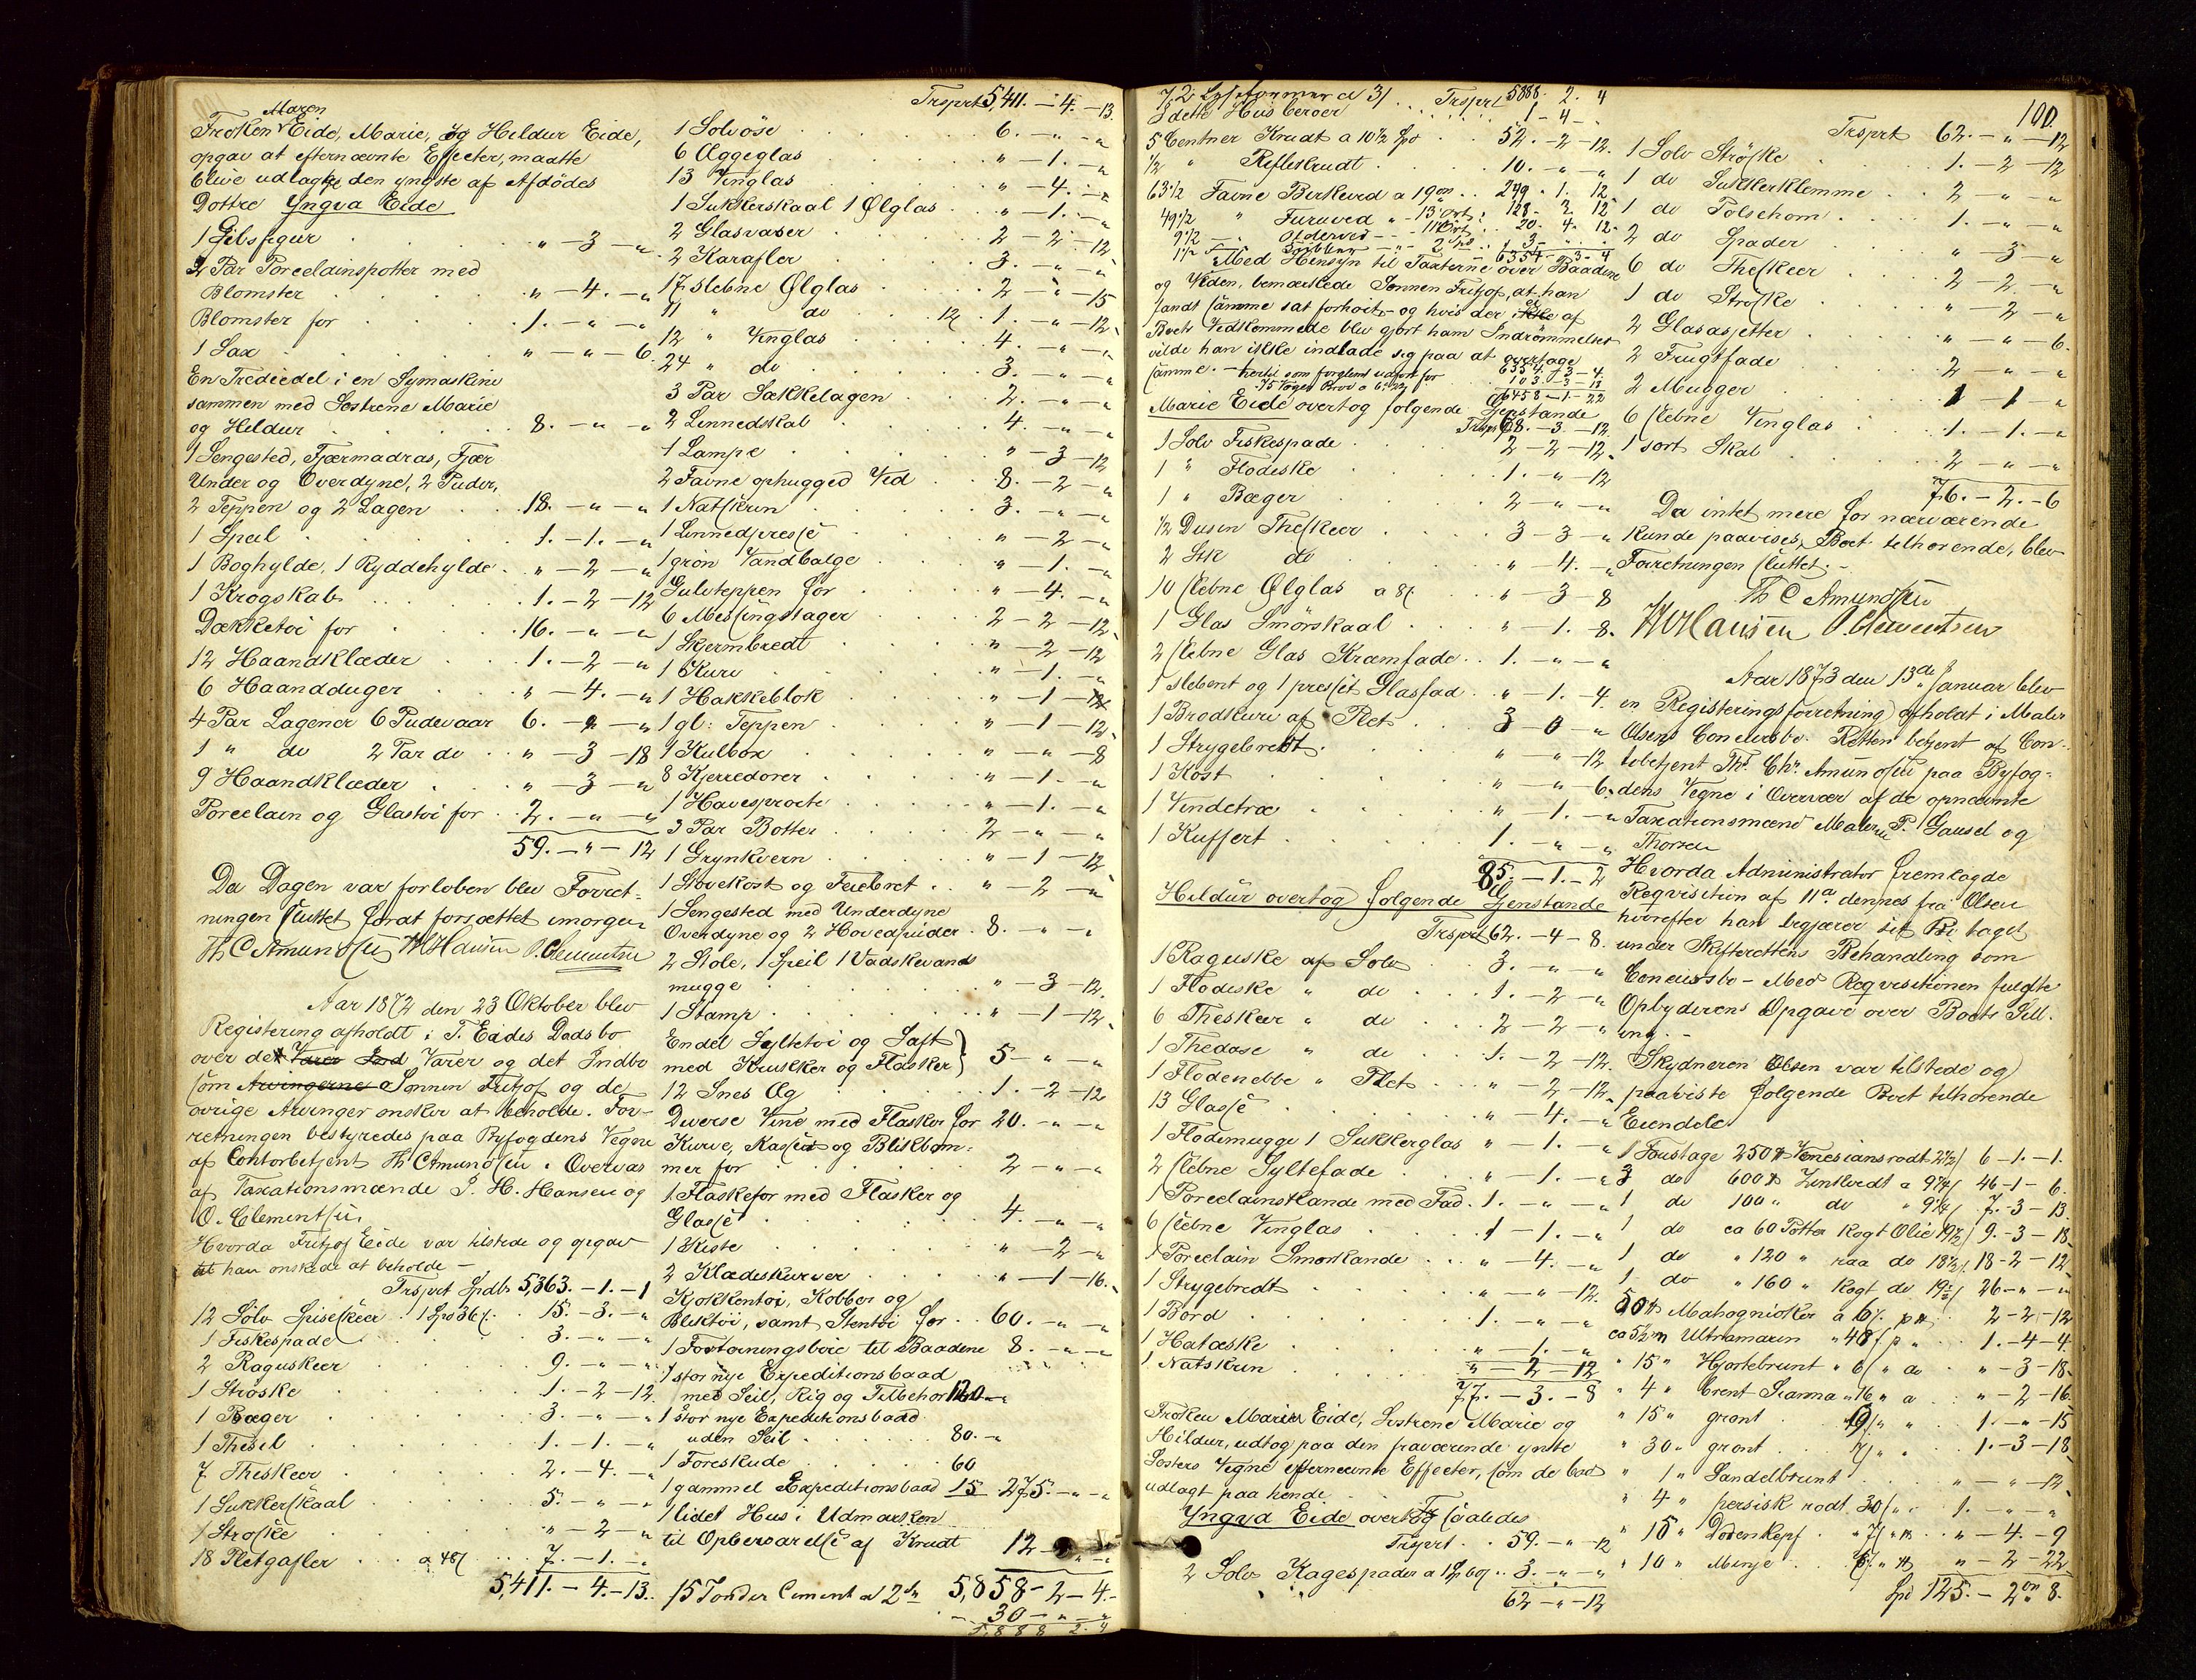 Maren
Frøken Eide, Marie, og Hildur Eide,
opgav at efternævnte Effecter, maatte
blive udlagte den yngste af Afdødes
Døttre Yngva Eide
1 Gibsfigur . . " - 3 - "
2 Par Porcelainspotter med
Blomster . . " - 4. - "
Blomster for . . 1. - " - "
1 Sax . . " - " - 6.
En Trediedel i en Symaskine
sammen med Søstrene Marie
og Hildur . . 8. - " - "
1 Sengested, Fjærmadras, Fjær
Under og Overdyne, 2 Puder,
2 Teppen og 2 Lagen . . 18. - " - "
1 Speil . . 1. - 1. - "
1 Boghylde, 1 Ryddehylde . " - 2 - "
1 Krogskab . . 1. - 2 - 12
Dækketøi for . . 16. - " - "
12 Haandklæder . . 1. - 2 - "
6 Haandduger . . " - 4. - "
4 Par Lagener 6 Pudevaar 6. - " - "
1 " do 2 Par do . . " - 3 - 18
9 Haandklæder . . " - 3 - "
Porcelain og Glastøi for . . 2. - " - "
59. - " - 12
Da Dagen var forløben blev Forret-
ningen sluttet forat forsættet imorgen
Th C Amundsen W Hansen O. Clementsen
Aar 1872 den 23 Oktober blev
Registering afholdt i T. Eides Dødsbo
over det Varer og det Indbo
som Arvingerne Sønnen Fritjof og de
øvrige Arvinger ønsker at beholde. For-
retningen bestyredes paa Byfogdens Vegne
af Contorbetjent Th C Amundsen i Overvær
af Taxationsmænde J. H. Hansen og
O. Clementsen.
Hvorda Fritjof Eide var tilstede og opgav
at han ønskede at beholde -
Trsprt Spdlr 5,363. - 1. - 1
12 Sølv Spiseskeer . 1 Spd 36 s. . 15. - 3. - "
1 Fiskespade . . 3. - " - "
2 Raguskeer . . 9. - " - "
1 Strøske . . 1. - 2 - 12
1 Bæger . . 3. - " - "
1 Thesil . . 1. - 1. - "
7 Theskeer . . 2. - 4. - "
1 Sukkerskaal . . 5. - " - "
1 Strøske . . " - 2 - "
18 Pletgafler . . a 48 s . . 7. - 1. - "
5,411. - 4. - 13.
Trsprt 5,411. - 4. - 13.
1 Solvøse . . 6. - " - "
6 Æggeglas . . " - 1. - "
13 Vinglas . . " - 4. - "
1 Sukkerskaal 1 Ølglas . . " - 1. - "
2 Glasvaser . . 2 - 2 - 12
2 Karafler . . 3. - " - "
17 slebne Ølglas . . 2 - " - 15
11 " do . . 12 . 1. - " - 12
12 " Vinglas . . 4. - " - "
24 " do . . 3. - " - "
3 Par Lakkelagen . . 2. - " - "
2 Linnedskab . . 4. - " - "
1 Lampe . . " - 3 - 12
2 Favne ophugged Ved . . 8. - 2 - "
1 Natskrin . . 3. - " - "
1 Linnedpresse . . " - 2 - "
1 grøn Vandbalge . . " - 1. - "
Gulvteppen for . . " - 4. - "
6 Messingstager . . 2 - 2 - 12
1 Skjermbredt . . " - 2 - 12
1 Kurv . . " - 1. - "
1 Hakkeblok . . " - 1 - 12
1 gl: Teppen . . " - 1 - 12
1 Kulbox . . " - " - 8
8 Kjerredorer . . " - 1. - "
1 Havesprøite . . " - 1. - "
3 Par Bøtter . . 2 - " - "
1 Grynkvern . . " - 1 - 12
1 Støvekost og Feiebret . . " - 2 - "
1 Sengested med Underdyne
Overdyne og 2 Hovedpuder . 8. - " - "
2 Stole, 1 Speil 1 Vadskevands
mugge . . " - 3 - 12.
1 Stamp . . " - 1 - 12
Endel Syltetøi og Saft
med Krukker og Flasker } 5 - " "
12 Snes Æg . . 1. - 2 - 12
Diverse Vine med Flasker for 20. - " - "
Kurve, Kasser og Blikbom-
mer for . . 2 - " - "
1 Flaskefor med Flasker og
Glasse . . 4. - " - "
1 Kiste . . " - 2 - "
2 Klædeskurver . . " - 1 - 16.
Kjøkkentøi, Kobber og
Bliktøi, samt Stentøi for . . 60. - " - "
1 Fortørningsbøie til Baadene 8. - " - "
1 stor nye Expeditionsbaad
med Seil, Rig og Tilbehør 120 - "
1 stor nye Expeditionsbaad
uden Seil . . 80. - "
1 Foreskude . . 60
1 gammel Expeditionsbaad 15 275. - " - "
1 lidet Hus i Udmarsken
til Opbevarelse af Krudt 12 - " - "
5,858 - 2 - 4.
15 Tønder Cement a 2 Spd 30 - " - "
5,888 2. 4
7/2 a 3/ . . Trsprt 5888. 2. 4
I dette Hus beroer . . 1 - 4 -
5 Centner Krudt a 10½ Spd . . 52. - 2 - 12.
½ " Riflekrudt . . 10. - " - "
63½ Favne Birkeved a 19 ort . . 249 . 1. 12
49½ " Furuved " - 13 Ort . 128 - 2 12
9½ - " Olderved - - 11 Ort . . 20. 4. 12
1½ 2 Spd . 3 -
6354 - 3 - 4
Med Hensyn til Taxterne over Baadene
og Veden, bemærkede Sønnen Fritjof, at han
fandt samme sat forhøit - og hvis der ei af
Boets Vedkommede blev gjort ham Indrømmelser
vilde han ikke indlade sig paa at overtage
samme. - hertil som forglemt udført for 6354 - 3 - 4.
103 - 3 - 18
6458 - 1 - 22
Marie Eide overtog følgende Gjenstande
Trsprt 68. - 3. - 12
1 Sølv Fiskespade . . 2 - 2 - 12
1 " Flødeske . . 1. - " - 12
1 " Bæger . . 2 - " - "
½ Dusin Theskeer . . 3 - 3 - "
2 Stk do . . " - 4. - "
10 slebne Ølglas a 8 s . . " - 3 - 8
1 Glas Smørskaal . . " - 1. 8.
2 slebne Glas Kramfade . . 1. - " - "
1 slebent og 1 presset Glasfad . . " - 1. - 4.
1 Brødkurv af Plet . . 3 - 0 - "
1 Strygebredt . . " - " - 12
1 Kost . . " - " - 6.
1 Vindetræ . . " - 1. - "
1 Kuffert . . 1. - " - "
85. - 1. - 2
Hildur overtog følgende Gjenstande
Trsprt 62. - 4 - 8.
1 Raguske af Sølv . . 3. - " - "
1 Flødeske " do . . 1. - 2 - "
6 Theskeer " do . . 2 - 2 - "
1 Thedose " do . . 1. - 2 - 12.
1 Flødenebbe " Plet . . " - 2 - 12
13 Glasse . . " - 4. - "
1 Flødemugge 1 Sukkerglas " - 1. - "
2 slebne Syltefade . . " - 1. - "
1 Porcelainskande med Fad . 1. - " - "
6 slebne Vinglas . . 1 - 1. - "
1 Porcelain Smørkande . . " - 4. - "
1 Strygebredt . . " - " - 12.
1 Bord . . 1. - " - "
1 Hatæske . . " - 1. - "
1 Natskrin . . " - 2 - 12
77. - 3. - 8
Frøken Maren Eide, Søstrene Marie og
Hildur, udtog paa den fraværende ynste
Søsters Vegne efternævnte Effecter, som de bad
udlagt paa hende
Yngva Eide overtog saaledes
Trsprt . . 59. - " - 12
2 Sølv Kagespader a 1 Sp 60 s . . 3. - " - "
62 - " - 12
100.
Trsprt 62. - " - 12
1 Sølv Strøske . . 1. - 2 - 12
1 do Sukkerklemme . . 2 - " - "
1 do Polsehorn . . 1. - " - "
2 do Spader . . " - 3 - "
6 do Theskeer . . 2 - 2 - "
1 do Strøske . . " - 2 - "
2 Glasasjetter . . " - " - 6.
2 Frugtfade . . 2 - " - "
2 Mugger . . 1 - 1 - "
6 slebne Vinglas . . 1. - 1. - "
1 sort Skab . . 2 - " - "
76. - 2. - 6
Da intet mere for nærværende
kunde paavises, Boet tilhørende, blev
Forretningen sluttet. -
Th C Amundsen
W Hansen O. Clementsen
Aar 1873 den 13de Januar blev
en Registeringsforretning afholdt i Maler
Olsens Concursbo. Retten betjent af Con-
tobetjent Ths. Chr. Amundsen paa Byfog-
dens Vegne i Overvær af de opnævnte
Taxationsmænd Malerne P. Gausel og
Thorsen
Hvorda Administrator fremlagde
Reqvisition af 11te dennes fra Olsen
hvorefter han begjærer sit Bo taget
under Skifterettens Behandling som
Concursbo - Med Reqvisitionen fulgte
Opbyderens Opgave over Boets Still-
ing. -
Skydneren Olsen var tilstede og
paaviste følgende Boet tilhørende
Eiendele
1 Foustage 250 ℔ Venesiansrødt 2½ s 6 - 1. - 1.
3 do 600 ℔ Zinkhvidt a 9¼ s 46 - 1 - 6.
1 do 100 " do " 9¼ s 7. - 3 - 13
1 do ca 60 Potter kogt Olie 19½ s 9. - 3 - 18
1 do " 120 " raa do 18½ s. 18 - 2 - 12
1 do " 160 " kogt do 19½ s 26 - " - "
50 ℔ Mahogniokker a 6 s. p ℔ 2 - 2 - 12
ca 5½ ℔ Ultramarin " 48 s p " . 1. - 4 - 4
" 15 " Hjortebrunt " 6 s " do " - 3 - 18
" 4 " brent Sianna " 16 " a " - 2 - 16
" 15 " grønt . . 1. - " - 15
" 30 " grønt . . 7 s " . . 1. - 3 - 18
" 1 " Sandelbrunt . . " - " - 12
" 4 " persisk rødt 30 s " . 1. - " - "
" 15 " Dødenkopf . " 7 s " ℔ . . " - 4. - 9
" 10 " Mønje . . ℔ " - 2 - 22
Spd 125. - 2 ort 8.